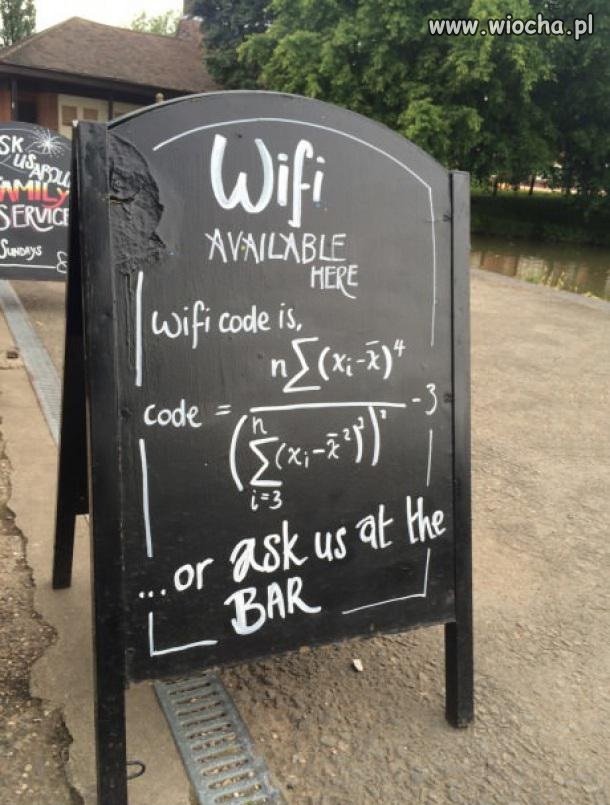 www.wiocha.pl
SK
US ABOU
FAMILY
SERVICE
SUNDAYS
Wifi
AVAILABLE
HERE
Wifi code is,
code = n∑(xᵢ-x̄)⁴ / (∑ⁿᵢ₌₃(xᵢ-x̄²)²)² - 3
...or ask us at the
BAR